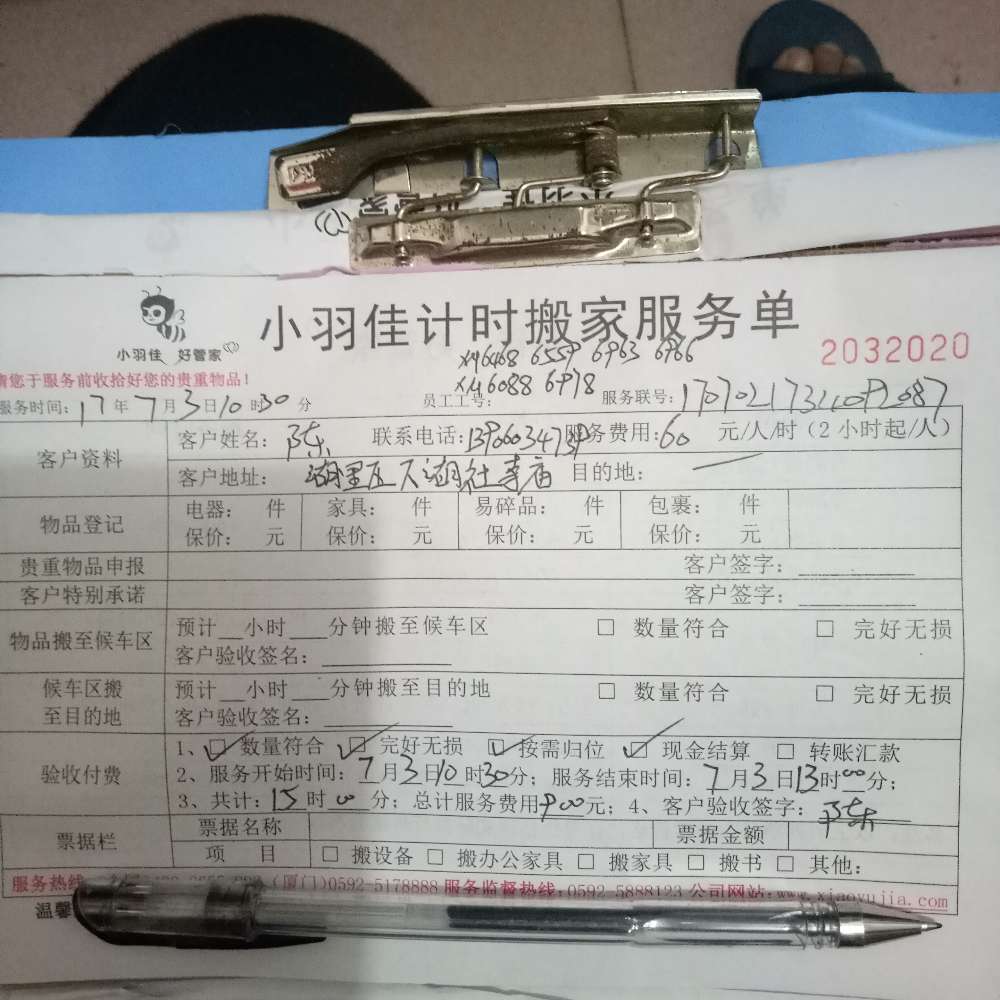 小羽佳计时搬家服务单
小羽佳 好管家
2032020
请您于服务前收拾好您的贵重物品！
XM6468 6559 6963 6966
XM6088 6978
服务时间：17年7月3日10时30分 员工工号： 服务联号：
客户资料
客户姓名：陈 联系电话： 服务费用：60 元/人/时（2小时起/人）
客户地址：湖里区 湖社 庙 目的地：
物品登记
电器： 件 家具： 件 易碎品： 件 包裹： 件
保价： 元 保价： 元 保价： 元 保价： 元
贵重物品申报 客户签字：
客户特别承诺 客户签字：
物品搬至候车区
预计__小时___分钟搬至候车区 □ 数量符合 □ 完好无损
客户验收签名：
候车区搬至目的地
预计__小时___分钟搬至目的地 □ 数量符合 □ 完好无损
客户验收签名：
验收付费
1、☑数量符合 ☑完好无损 ☑按需归位 ☑现金结算 □ 转账汇款
2、服务开始时间：7月3日10时30分；服务结束时间：7月3日13时00分；
3、共计：15时00分；总计服务费用900元；4、客户验收签字：陈
票据栏
票据名称 票据金额
项 目 □ 搬设备 □ 搬办公家具 □ 搬家具 □ 搬书 □ 其他：
服务热线 （厦门）0592-5178888 服务监督热线：0592-5888123 公司网站：www.xiaoyujia.com
温馨